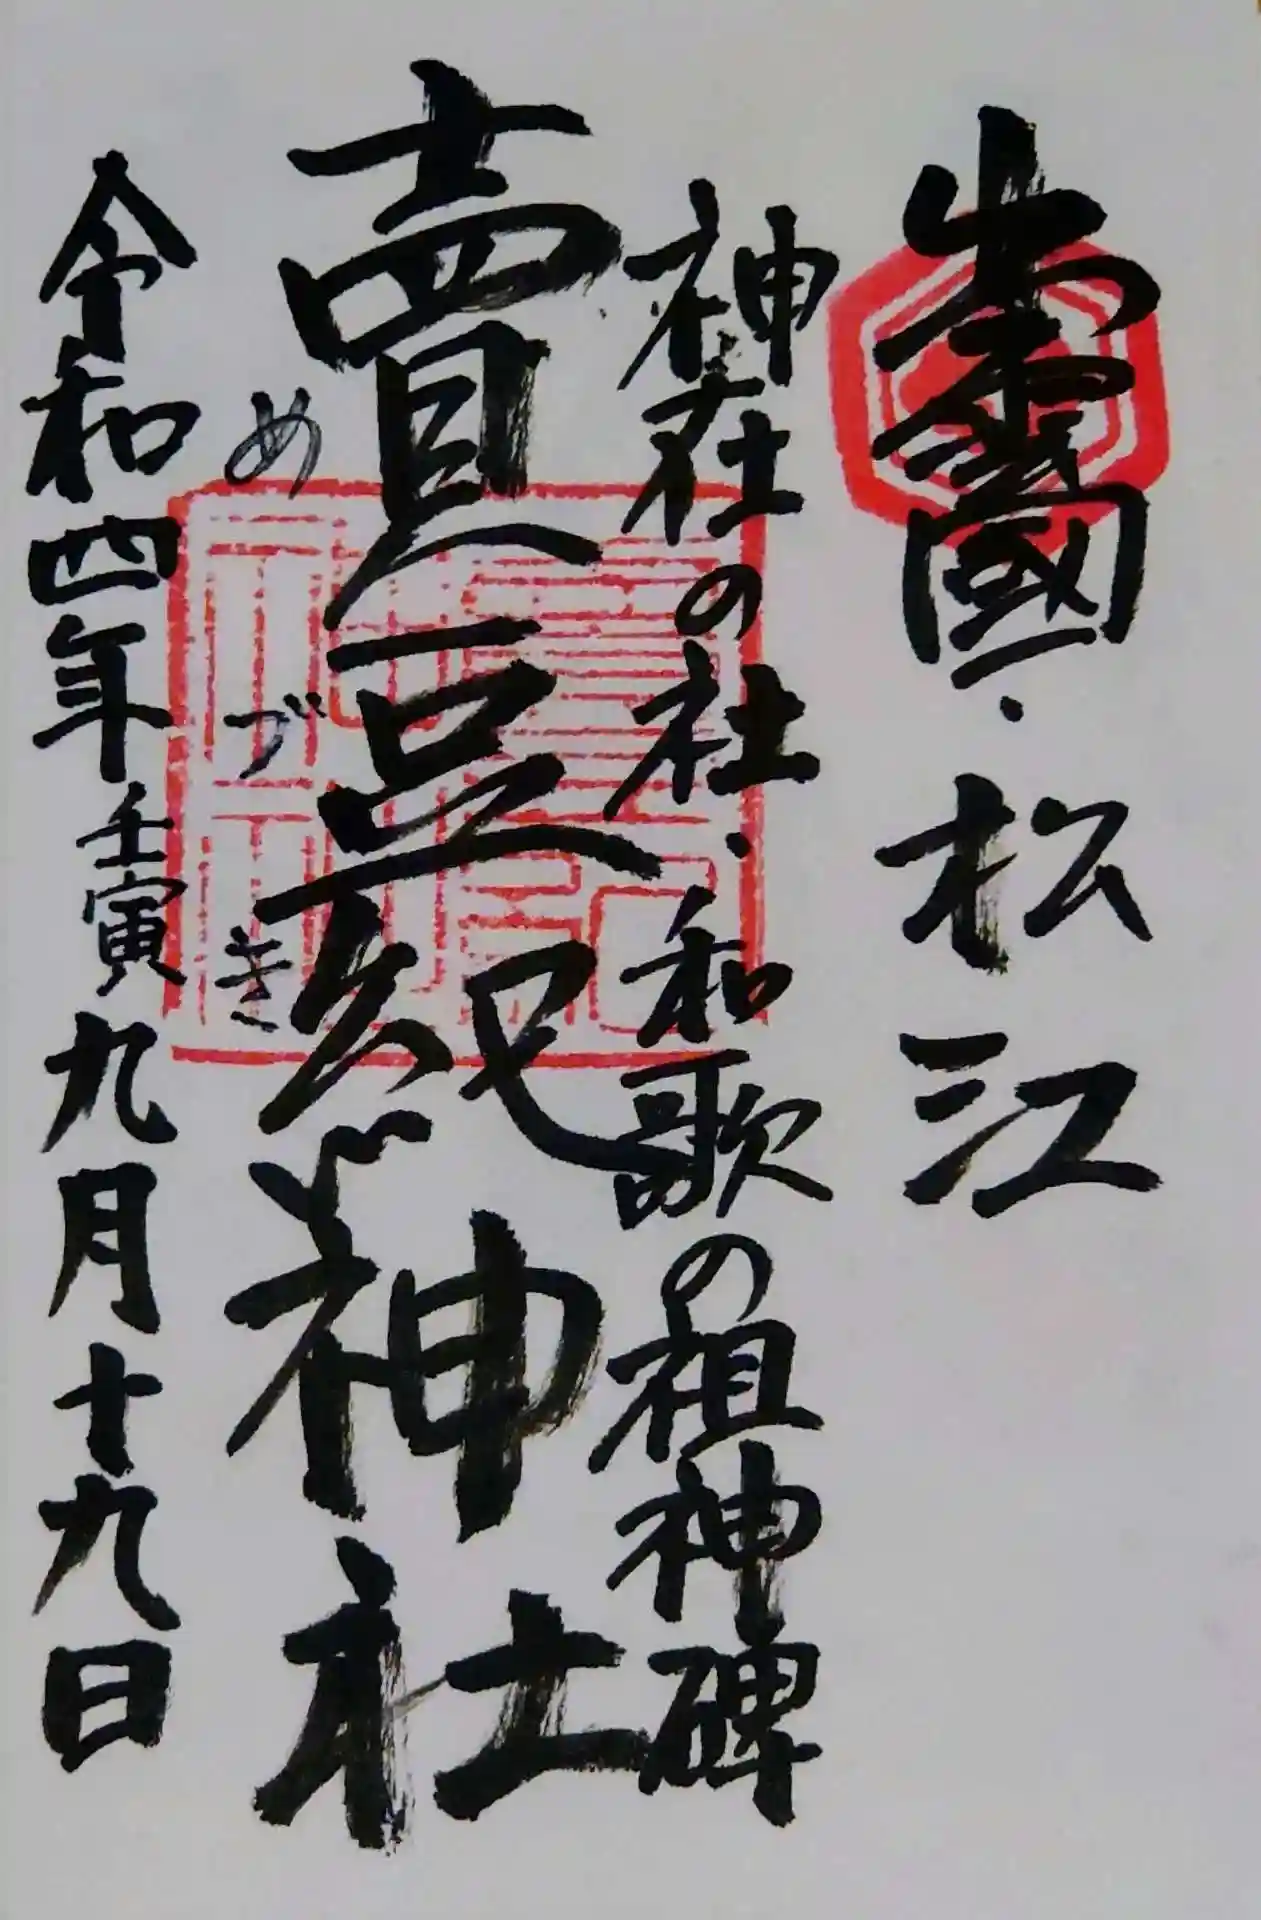 出雲國・松江
神在の社・和歌の祖神碑
賣豆紀神社
めづき
令和四年壬寅九月十九日